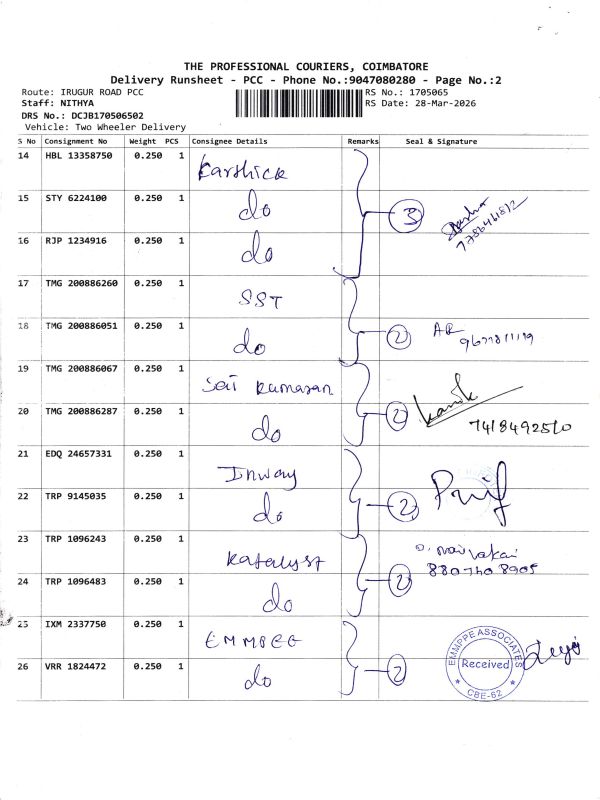 THE PROFESSIONAL COURIERS, COIMBATORE
Delivery Runsheet - PCC - Phone No.:9047080280 - Page No.:2
Route: IRUGUR ROAD PCC
Staff: NITHYA
DRS No.: DCJB170506502
Vehicle: Two Wheeler Delivery
RS No.: 1705065
RS Date: 28-Mar-2026
S No Consignment No Weight PCS Consignee Details Remarks Seal & Signature
14 HBL 13358750 0.250 1 Karthick
15 STY 6224100 0.250 1 do 3
16 RJP 1234916 0.250 1 do
17 TMG 200886260 0.250 1 SST
18 TMG 200886051 0.250 1 do 2 AR
19 TMG 200886067 0.250 1 Sai Kumaran
20 TMG 200886287 0.250 1 do 2 7418492510
21 EDQ 24657331 0.250 1 Inway
22 TRP 9145035 0.250 1 do 2
23 TRP 1096243 0.250 1 Katalyst
24 TRP 1096483 0.250 1 do 2
25 IXM 2337750 0.250 1 EMMPEE
26 VRR 1824472 0.250 1 do 2
EMMPPE ASSOCIATES
Received
CBE-62